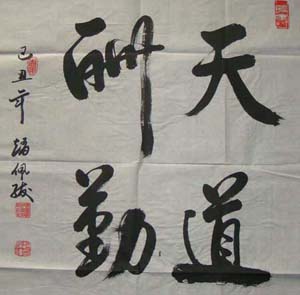 天道
酬勤
己丑年